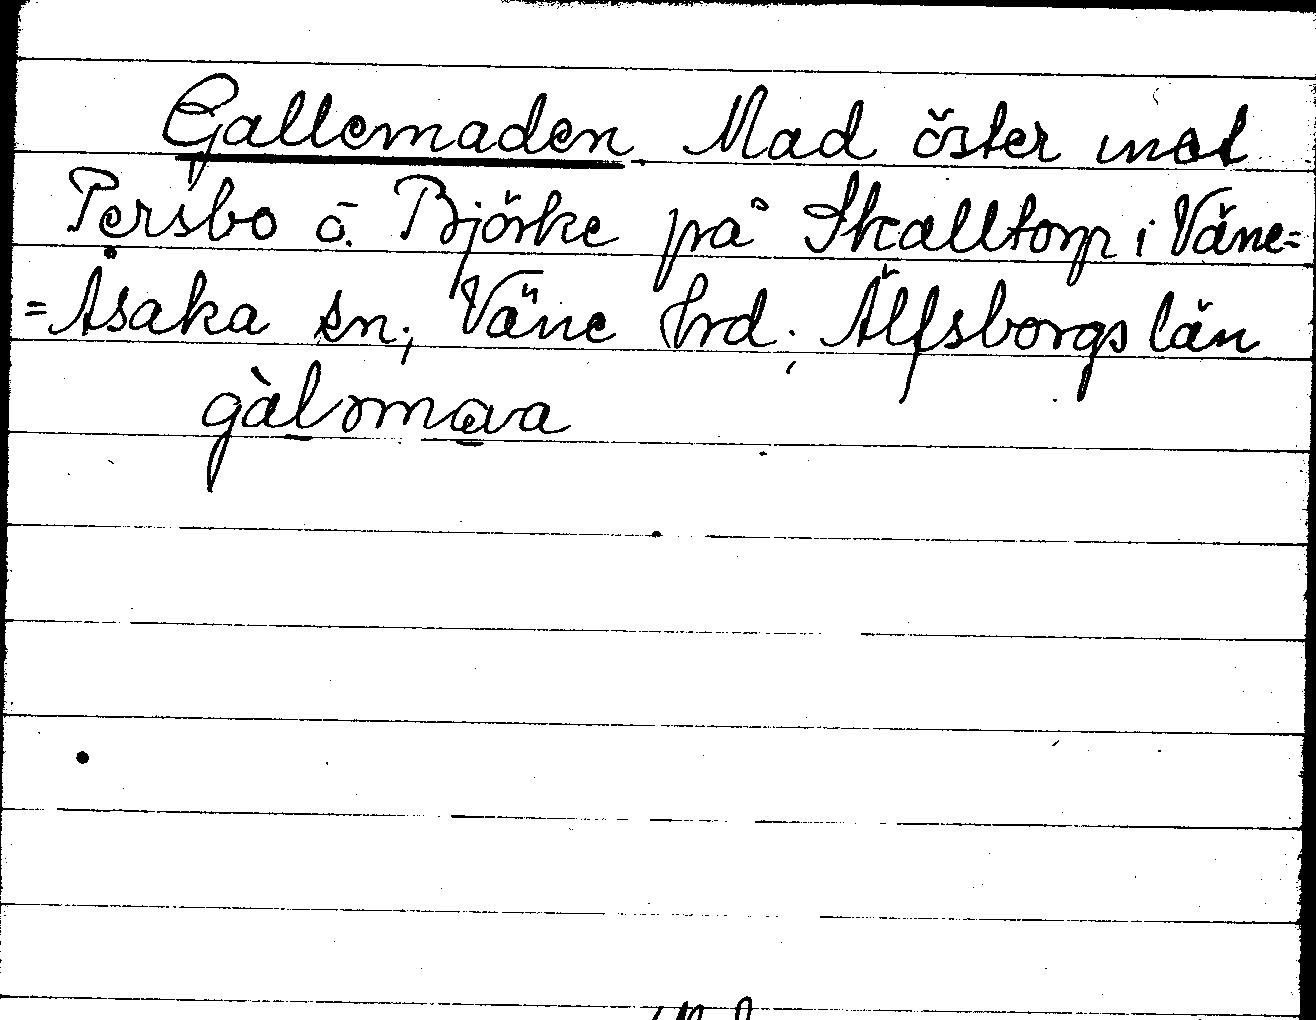 Gallemaden. Mad öster mot
Persbo ö. Björke på Skalltorp i Väne=
=Åsaka sn; Väne Hrd; Älfsborgs län
gàləmava